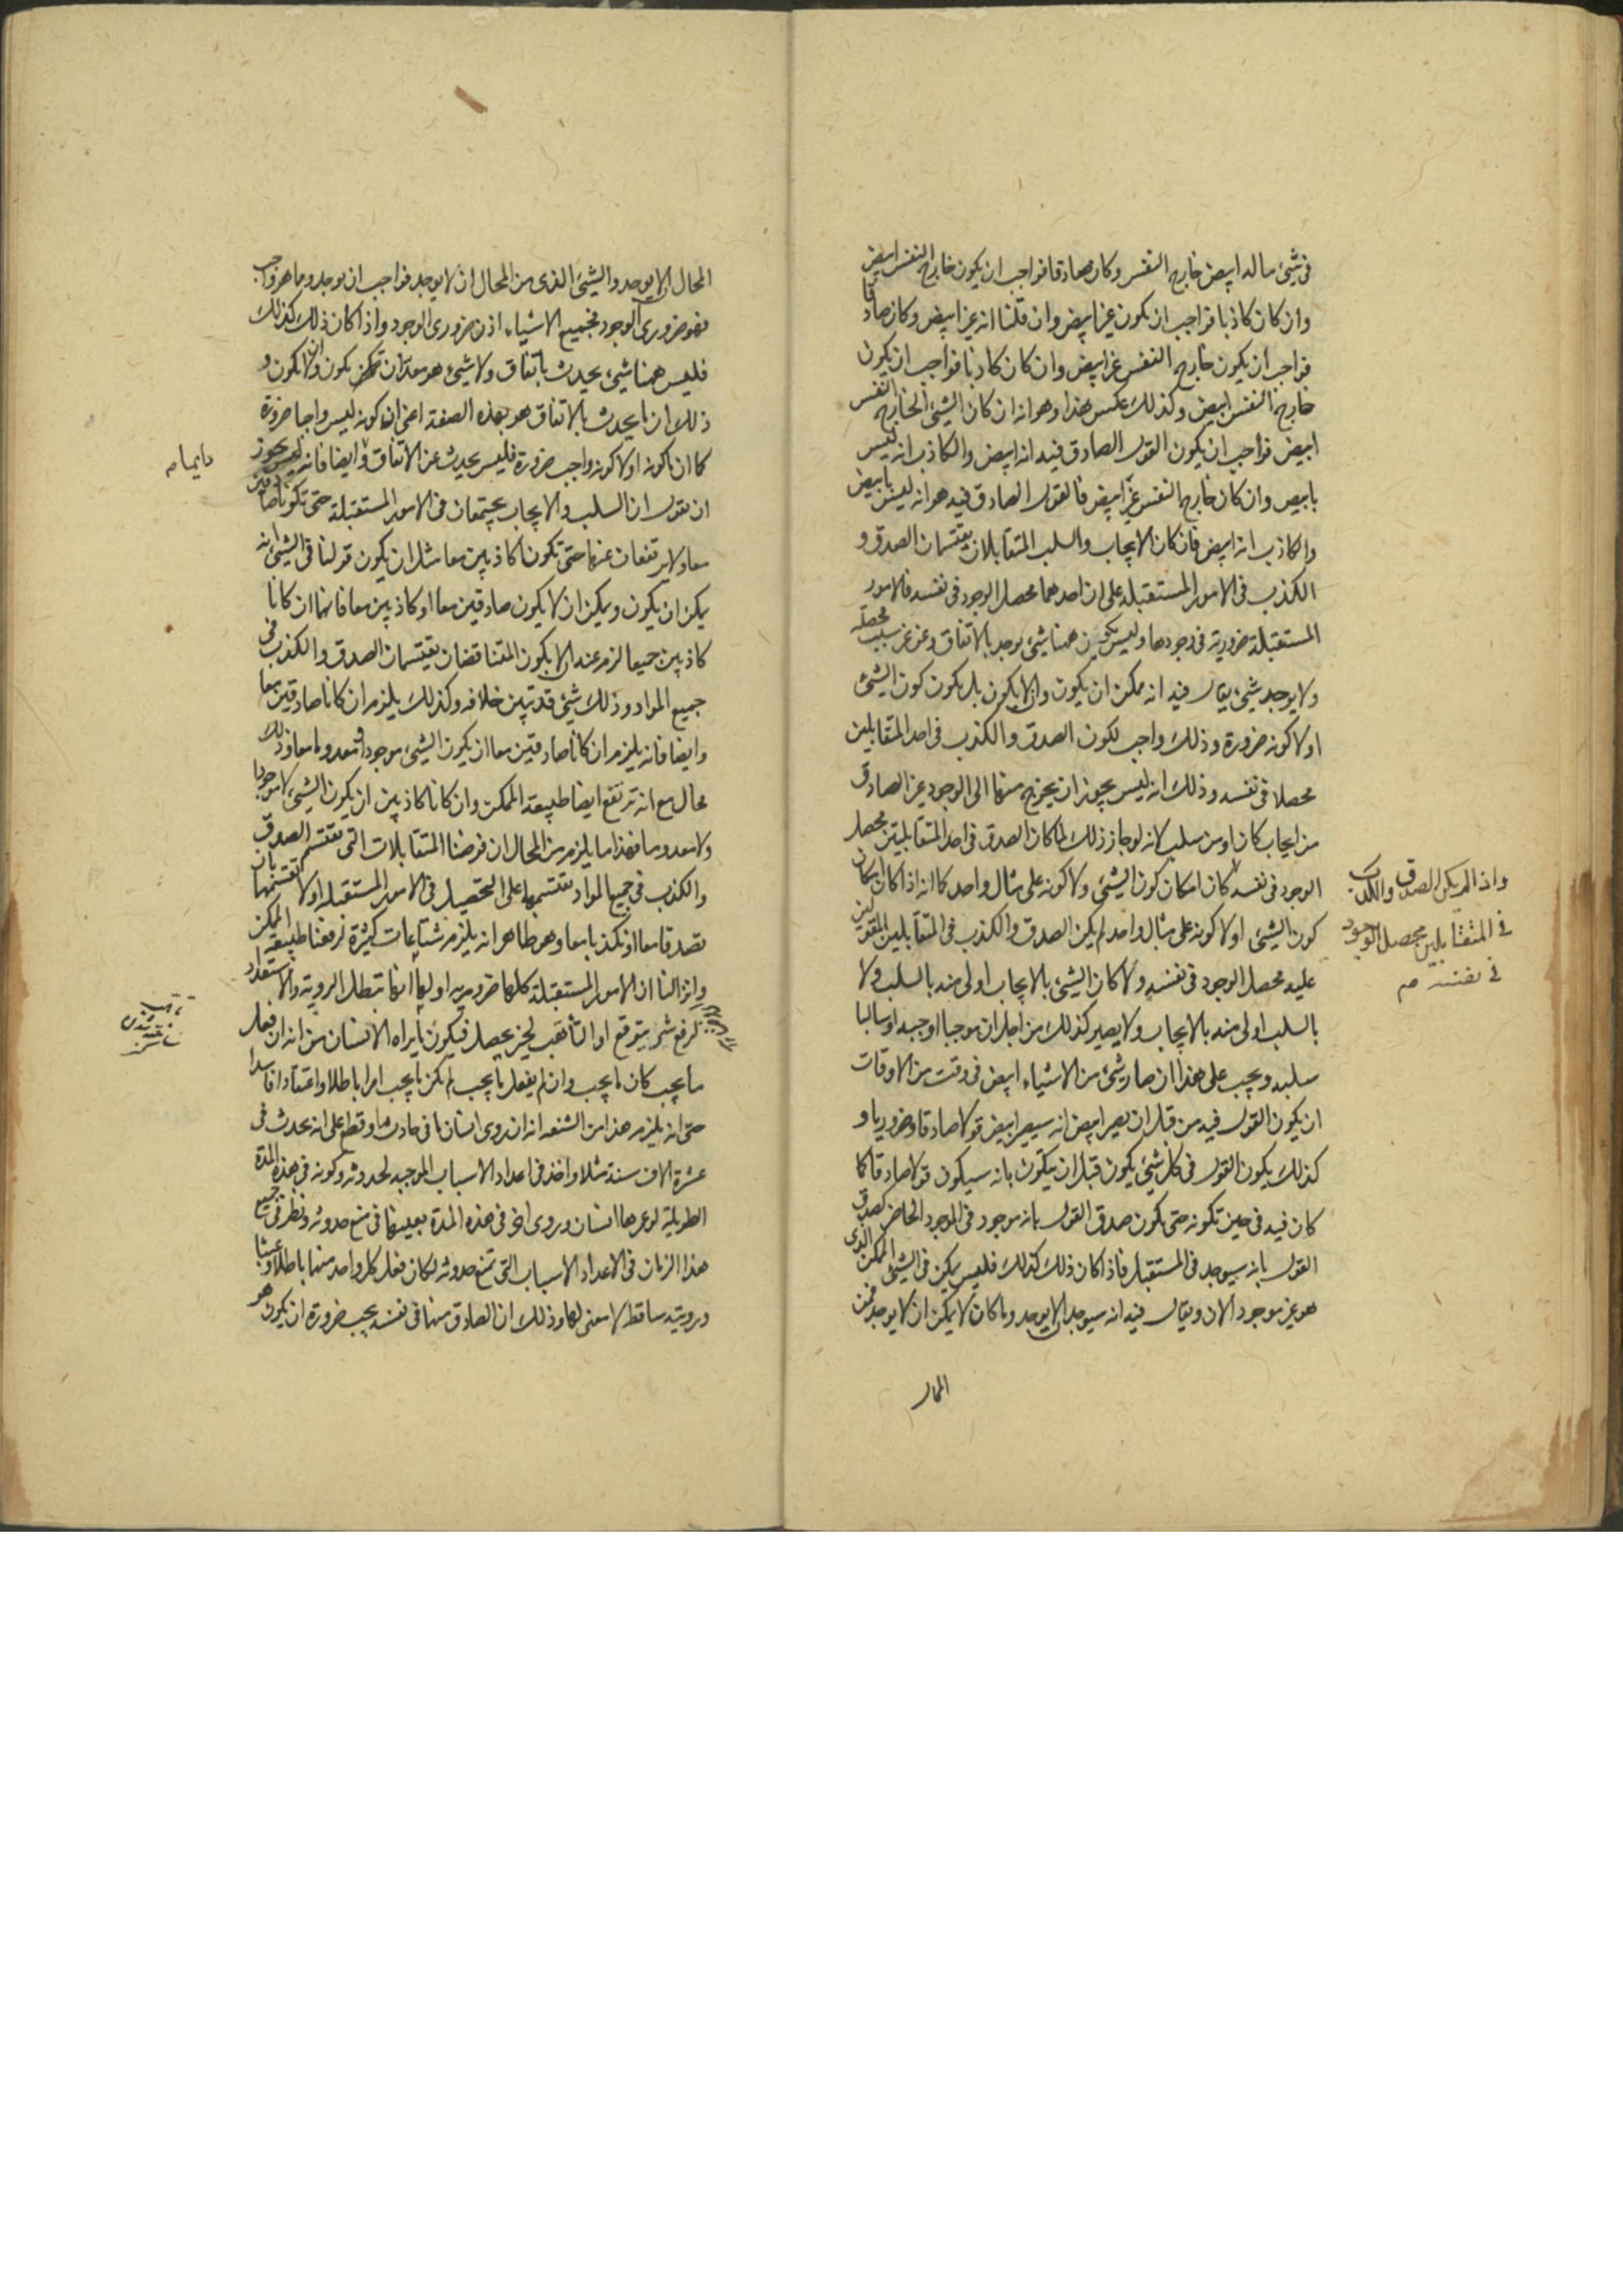 في شيء ما انه ابيض خارج النفس وكان صادقا فواجب ان يكون خارج النفس ابيض
وان كان كاذبا فواجب ان يكون غير ابيض وان قلنا انه غير ابيض وكان صادقا
فواجب ان يكون خارج النفس غير ابيض وان كان كاذبا فواجب ان يكون
خارج النفس ابيض وكذلك عكس هذا وهو انه ان كان الشيء الخارج النفس
ابيض فواجب ان يكون القول الصادق فيه انه ابيض والكاذب انه ليس
بابيض وان كان خارج النفس غير ابيض فالقول الصادق فيه هو انه ليس بابيض
والكاذب انه ابيض فان كان الايجاب والسلب المتقابلان يقتسمان الصدق و
الكذب في الامور المستقبلة على ان احدهما محصل الوجود في نفسه فالامور
المستقبلة ضرورية في وجودها وليس يكون ههنا شيء يوجد بالاتفاق وعن غير سبب محصله
ولا يوجد شيء يقال فيه انه ممكن ان يكون وان لا يكون بل يكون كون الشيء
او لا كونه ضرورة وذلك واجب لكون الصدق والكذب في احد المتقابلين
محصلا في نفسه وذلك انه ليس يجوز ان يخرج منهما الى الوجود غير الصادق
من ايجاب كان او من سلب لانه لو جاز ذلك لما كان الصدق في احد المتقابلين محصل
الوجود في نفسه كان امكان كون الشيء ولا كونه على مثال واحد كما انه اذا كان امكان
واذا لم يكن الصدق والكذب
في المتقابلين محصل الوجود
في نفسه صح
كون الشيء او لا كونه على مثال واحد لم يكن الصدق والكذب في المتقابلين المقولين
عليه محصل الوجود في نفسه ولا كان الشيء بالايجاب اولى منه بالسلب ولا
بالسلب اولى منه بالايجاب ولا يصير كذلك من اجل ان موجبا اوجبه او سالبا
سلبه ويجب على هذا ان صار شيء من الاشياء ابيض في وقت من الاوقات
ان يكون القول فيه من قبل ان يصير ابيض انه سيصير ابيض قولا صادقا وضروريا و
كذلك يكون القول في كل شيء يكون قبل ان يتكون بانه سيكون قولا صادقا كما
كان فيه في حين تكونه حتى يكون صدق القول بانه موجود في الموجود الحاضر كصدق
القول بانه سيوجد في المستقبل فاذا كان ذلك كذلك فليس يمكن في الشيء الممكن الذي
هو غير موجود الان ويقال فيه انه سيوجد ان لا يوجد وما كان لا يمكن ان لا يوجد فمن
المحال
المحال ان لا يوجد والشيء الذي من المحال ان لا يوجد فواجب ان يوجد وما هو واجب
فهو ضروري الوجود فجميع الاشياء اذن ضروري الوجود واذا كان ذلك كذلك
فليس ههنا شيء يحدث باتفاق ولا شيء هو معد ان يمكن يكون وان لا يكون و
ذلك ان ما يحدث بالاتفاق هو بهذه الصفة اعني ان كونه ليس واجبا ضرورة
كما ان ما كونه او لا كونه واجب ضرورة فليس يحدث عن الاتفاق وايضا فانه ليس يجوز
ان نقول ان السلب والايجاب يجتمعان في الامور المستقبلة حتى تكونا صادقين
معا ولا يرتفعان عنها حتى تكونا كاذبين معا مثل ان يكون قولنا في الشيء انه
يمكن ان يكون ويمكن ان لا يكون صادقين معا او كاذبين معا فانهما ان كانا
كاذبين جميعا لزم عنه ان لا يكون المتناقضان يقتسمان الصدق والكذب في
جميع المواد وذلك شيء قد تبين خلافه وكذلك يلزم ان كانا صادقين معا
وايضا فانه يلزم ان كانا صادقين معا ان يكون الشيء موجودا ومعدوما معا وذلك
محال مع انه ترتفع ايضا طبيعة الممكن وان كانا كاذبين ان يكون الشيء لا موجودا
ولا معدوما فهذا ما يلزم من المحال ان فرضنا المتقابلات التي تقتسم الصدق
والكذب في جميع المواد تقتسمها على التحصيل في الامور المستقبلة او لا تقتسمها بان
تصدقا معا او تكذبا معا وهو ظاهر انه يلزم شناعات كثيرة لرفعنا طبيعة الممكن
وانزالنا ان الامور المستقبلة كلها ضرورية اولها انها تبطل الروية والاستعداد
لرفع شر يتوقع او التأهب لخير يحصل فيكون ما يراه الانسان من انه ان فعل
ما يجب كان ما يجب وان لم يفعل ما يجب لم يكن ما يجب امرا باطلا واعتقادا فاسدا
حتى انه يلزم هذا من الشنعة انه ان روى انسان في حادث ما وقطع على انه يحدث في
عشرة الاف سنة مثلا واخذ في اعداد الاسباب الموجبه لحدوثه وكونه في هذه المدة
الطويلة لو عمرها انسان وروى اخر في هذه المدة بعينها في منع حدوثه ونظر في جميع
هذا الزمان في الاعداد الاسباب التي تمنع حدوثه لكان فعل كل واحد منهما باطلا وعبثا
ورويته ساقطه لا معنى لها وذلك ان الصادق منهما في نفسه يجب ضرورة ان يكون هو